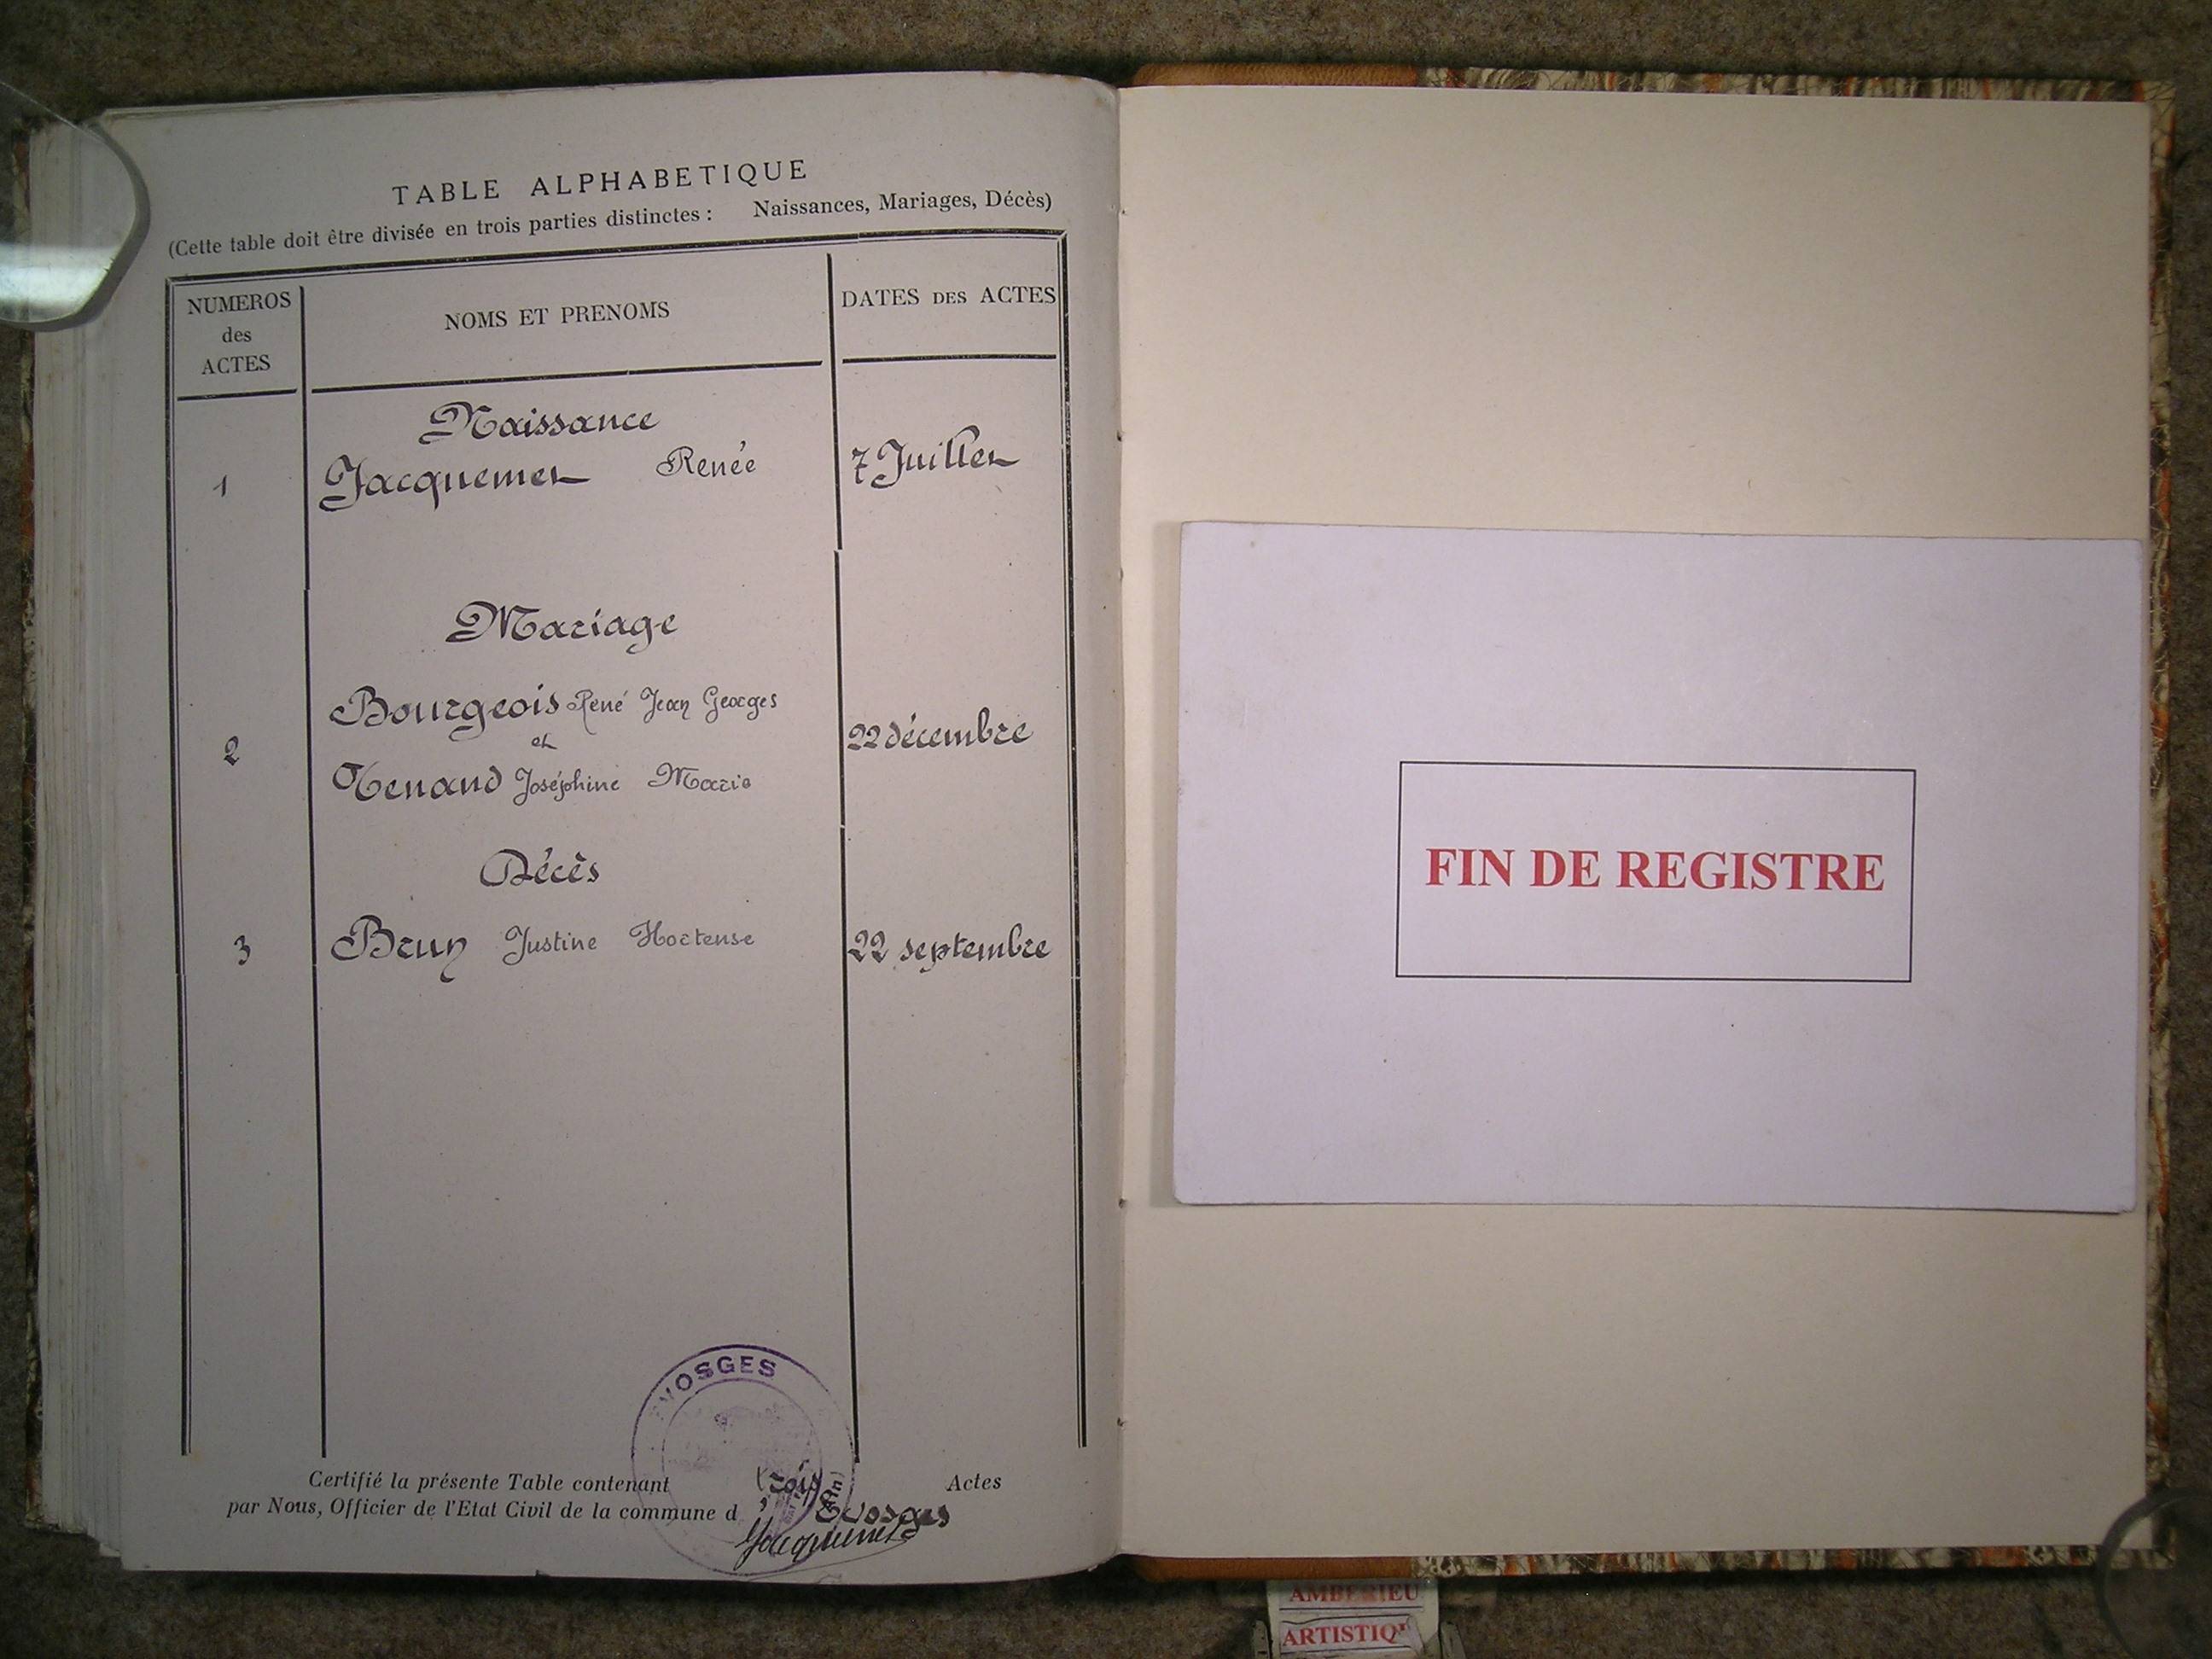 TABLE ALPHABETIQUE
(Cette table doit être divisée en trois parties distinctes : Naissances, Mariages, Décès)
NUMEROS des ACTES
NOMS ET PRENOMS
DATES DES ACTES
Naissance
1 Jacquemet Renée 7 Juillet
Mariage
Bourgeois René Jean Georges
2 et 22 décembre
Tenand Joséphine Marie
Décès
3 Brun Justine Hortense 22 septembre
VOSGES
(Ain)
Certifié la présente Table contenant trois Actes
par Nous, Officier de l'Etat Civil de la commune d'Evosges
Jacquemet
FIN DE REGISTRE
AMBERIEU
ARTISTIQ